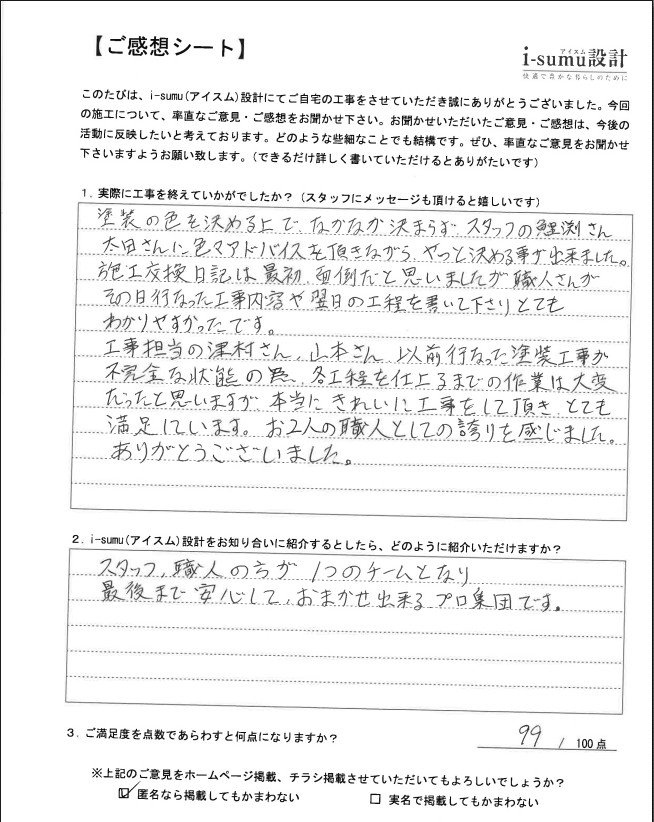 【ご感想シート】
アイスム
i-sumu設計
快適で豊かな暮らしのために
このたびは、i-sumu(アイスム)設計にてご自宅の工事をさせていただき誠にありがとうございました。今回
の施工について、率直なご意見・ご感想をお聞かせ下さい。お聞かせいただいたご意見・ご感想は、今後の
活動に反映したいと考えております。どのような些細なことでも結構です。ぜひ、率直なご意見をお聞かせ
下さいますようお願い致します。(できるだけ詳しく書いていただけるとありがたいです)
1. 実際に工事を終えていかがでしたか？(スタッフにメッセージも頂けると嬉しいです)
塗装の色を決める上で、なかなか決まらず、スタッフの鯉渕さん
太田さんに色々アドバイスを頂きながら、やっと決める事が出来ました。
施工交換日記は最初、面倒だと思いましたが職人さんが
その日行なった工事内容や翌日の工程を書いて下さりとても
わかりやすかったです。
工事担当の津村さん、山本さん、以前行なった塗装工事が
不完全な状態の為、各工程を仕上るまでの作業は大変
だったと思いますが、本当にきれいに工事をして頂き、とても
満足しています。お2人の職人としての誇りを感じました。
ありがとうございました。
2. i-sumu(アイスム)設計をお知り合いに紹介するとしたら、どのように紹介いただけますか？
スタッフ、職人の方が1つのチームとなり
最後まで安心して、おまかせ出来るプロ集団です。
3. ご満足度を点数であらわすと何点になりますか？
99 / 100点
※上記のご意見をホームページ掲載、チラシ掲載させていただいてもよろしいでしょうか？
☑ 匿名なら掲載してもかまわない
□ 実名で掲載してもかまわない